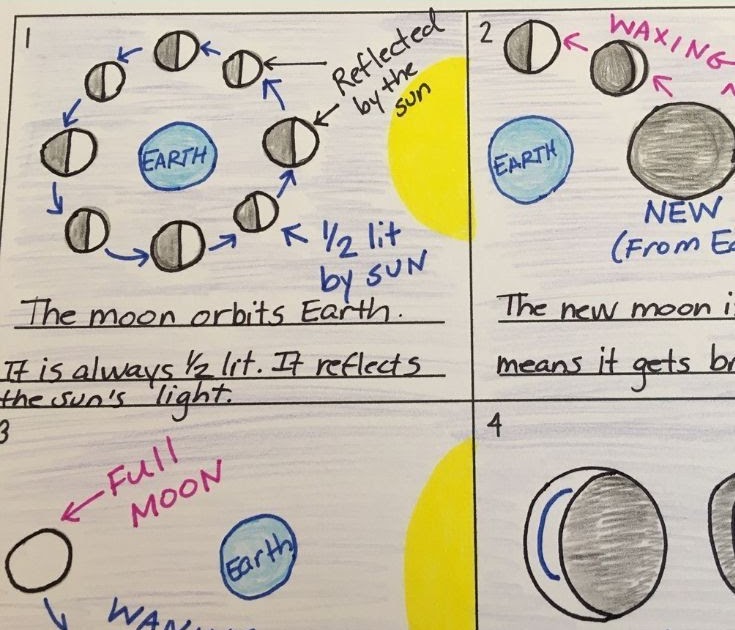 1
Reflected
by the
sun
EARTH
1/2 lit
by SUN
The moon orbits Earth.
It is always 1/2 lit. It reflects
the sun's light.
2
WAXING
EARTH
NEW
(From
The new moon
means it gets
3
Full
MOON
Earth
4